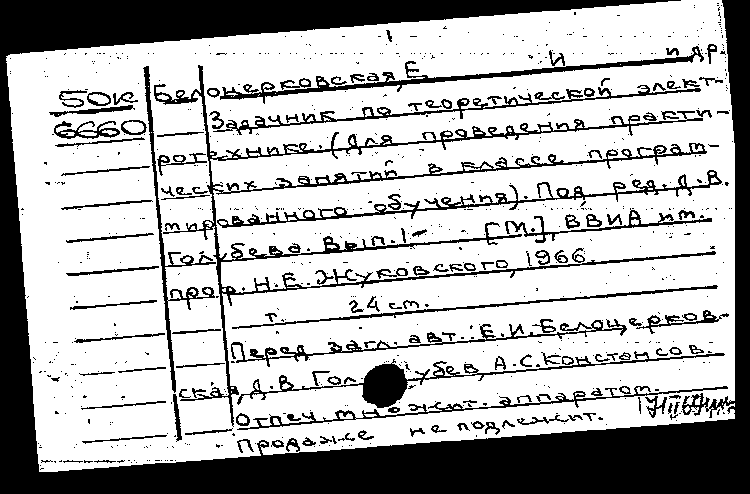 50К Белоцерковская, Е. И. и др.
6660 Задачник по теоретической элект-
ротехнике. (Для проведения практи-
ческих занятий в классе програм-
мированного обучения). Под ред. Д.В.
Голубева. Вып. 1- [М.], ВВИА им.
проф. Н.Е. Жуковского, 1966.
т. 24 см.
Перед загл. авт.: Е.И. Белоцерков-
ская, Д.В. Гол убев, А.С. Констансов.
Отпеч. множит. аппаратом.
Продаже не подлежит.